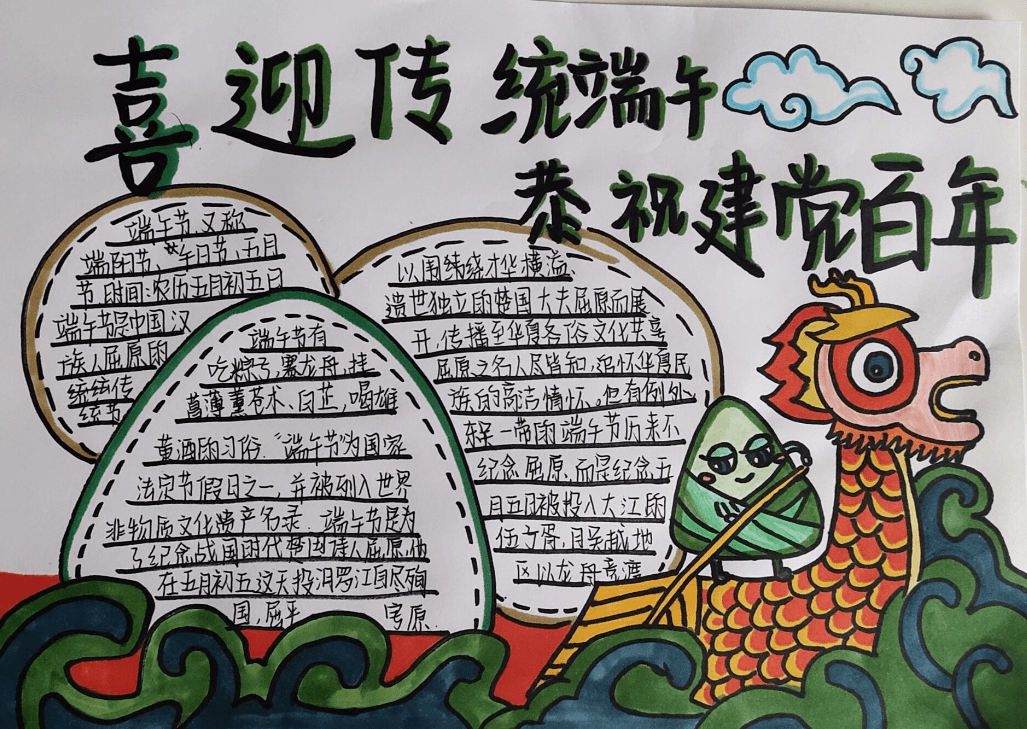 喜迎传统端午
恭祝建党百年
端午节,又称
端阳节、午日节、五月
节,时间:农历五月初五日
端午节是中国汉
族人屈原的
统统传
统节
端午节有
吃粽子,赛龙舟,挂
菖蒲薰苍术、白芷,喝雄
黄酒的习俗."端午节"为国家
法定节假日之一,并被列入世界
非物质文化遗产名录.端午节是为
了纪念战国时代楚国诗人屈原,他
在五月初五这天投汨罗江自尽殉
国,屈平 原.
以围绕才华横溢、
遗世独立的楚国大夫屈原而展
开,传播至华夏各俗文化共享
屈原之名人尽皆知,追怀华夏民
族的高洁情怀。但有例外
东吴一带的端午节历来不
纪念屈原,而是纪念五
月五日被投入大江的
伍子胥,且吴越地
区以龙舟竞渡